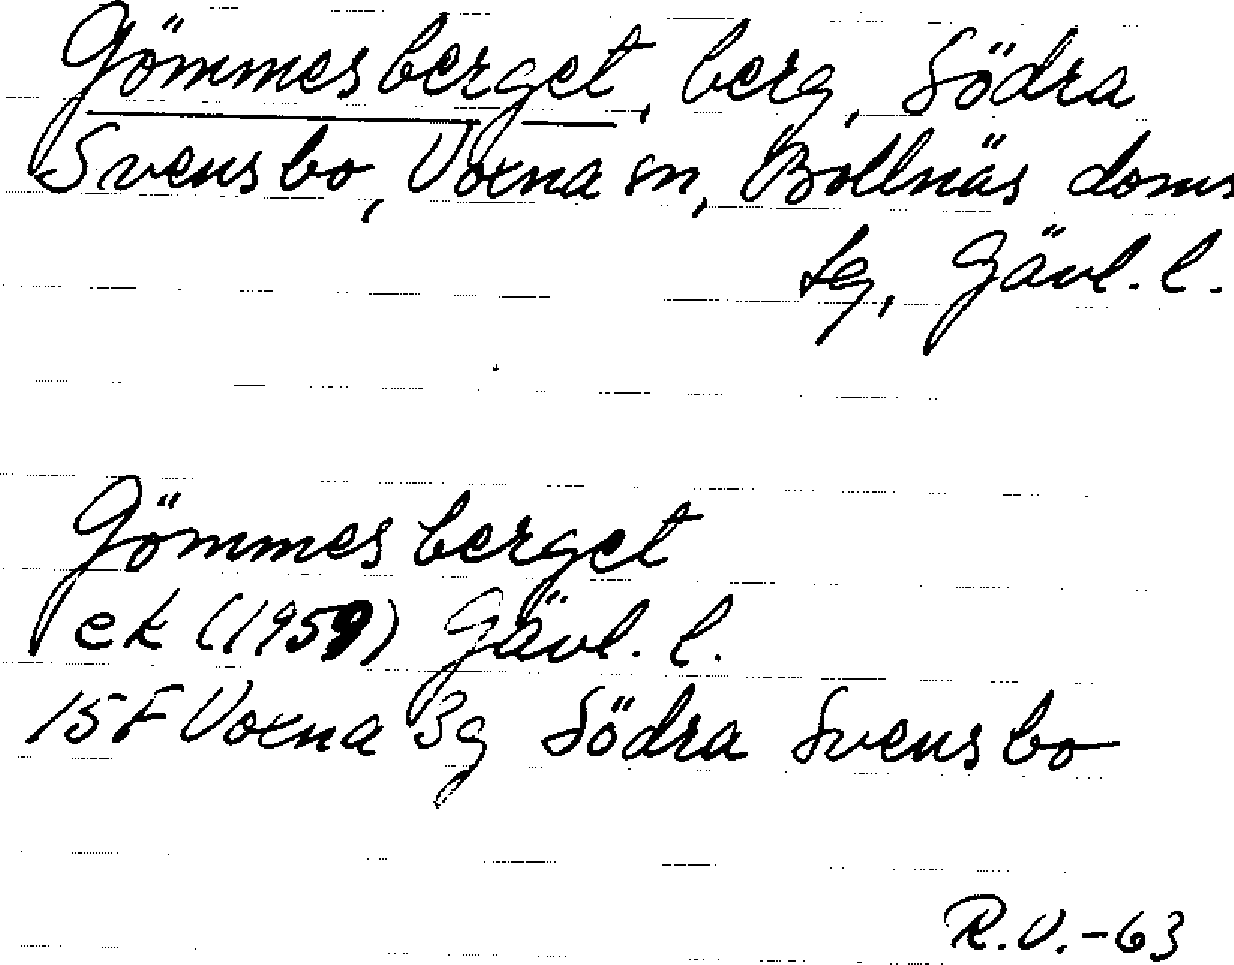 Gömmesberget, berg, Södra
Svensbo, Voxna sn, Bollnäs doms
sg, Gävl. l.
Gömmesberget
ek (1959) Gävl. l.
15F Voxna 3g Södra Svensbo
R.V.-63